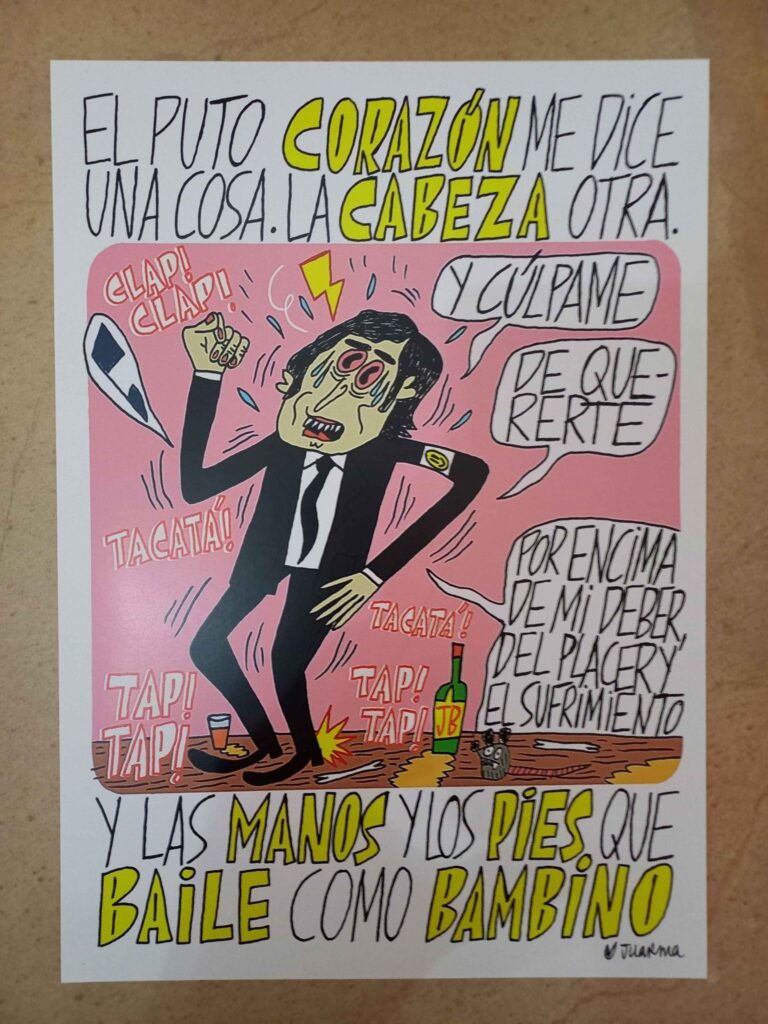 EL PUTO CORAZÓN ME DICE
UNA COSA. LA CABEZA OTRA.
CLAP!
CLAP!
Y CÚLPAME
DE QUE-
RERTE
TACATÁ!
POR ENCIMA
DE MI DEBER,
DEL PLACER Y
EL SUFRIMIENTO
TACATÁ!
TAP!
TAP!
TAP!
TAP!
JB
Y LAS MANOS Y LOS PIES QUE
BAILE COMO BAMBINO
JUARMA